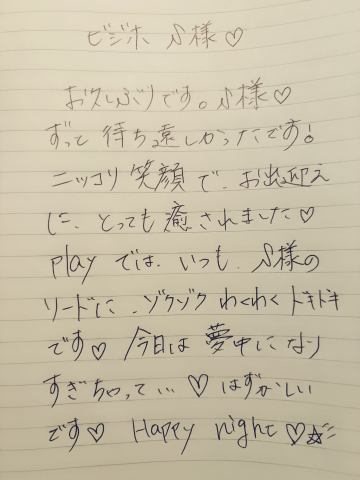 ビジホ ♪様♡
お久しぶりです。♪様♡
ずっと 待ち遠しかったです!
ニッコリ 笑顔 で、お出迎え
に、とっても 癒されました♡
play では、いつも、♪様の
リードに、ゾクゾク わくわく ドキドキ
です♡ 今日は 夢中になり
すぎちゃって… ♡ はずかしい
です♡ Happy night ♡☆彡